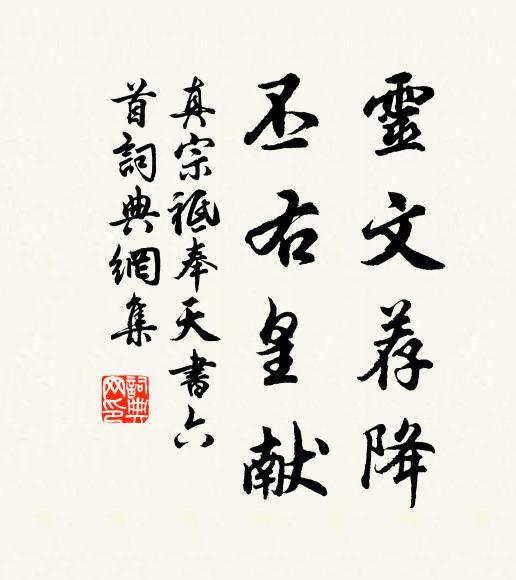 靈文荐降
丕右皇献
真宗祗奉天書六
首詞典網集
詞典
网印